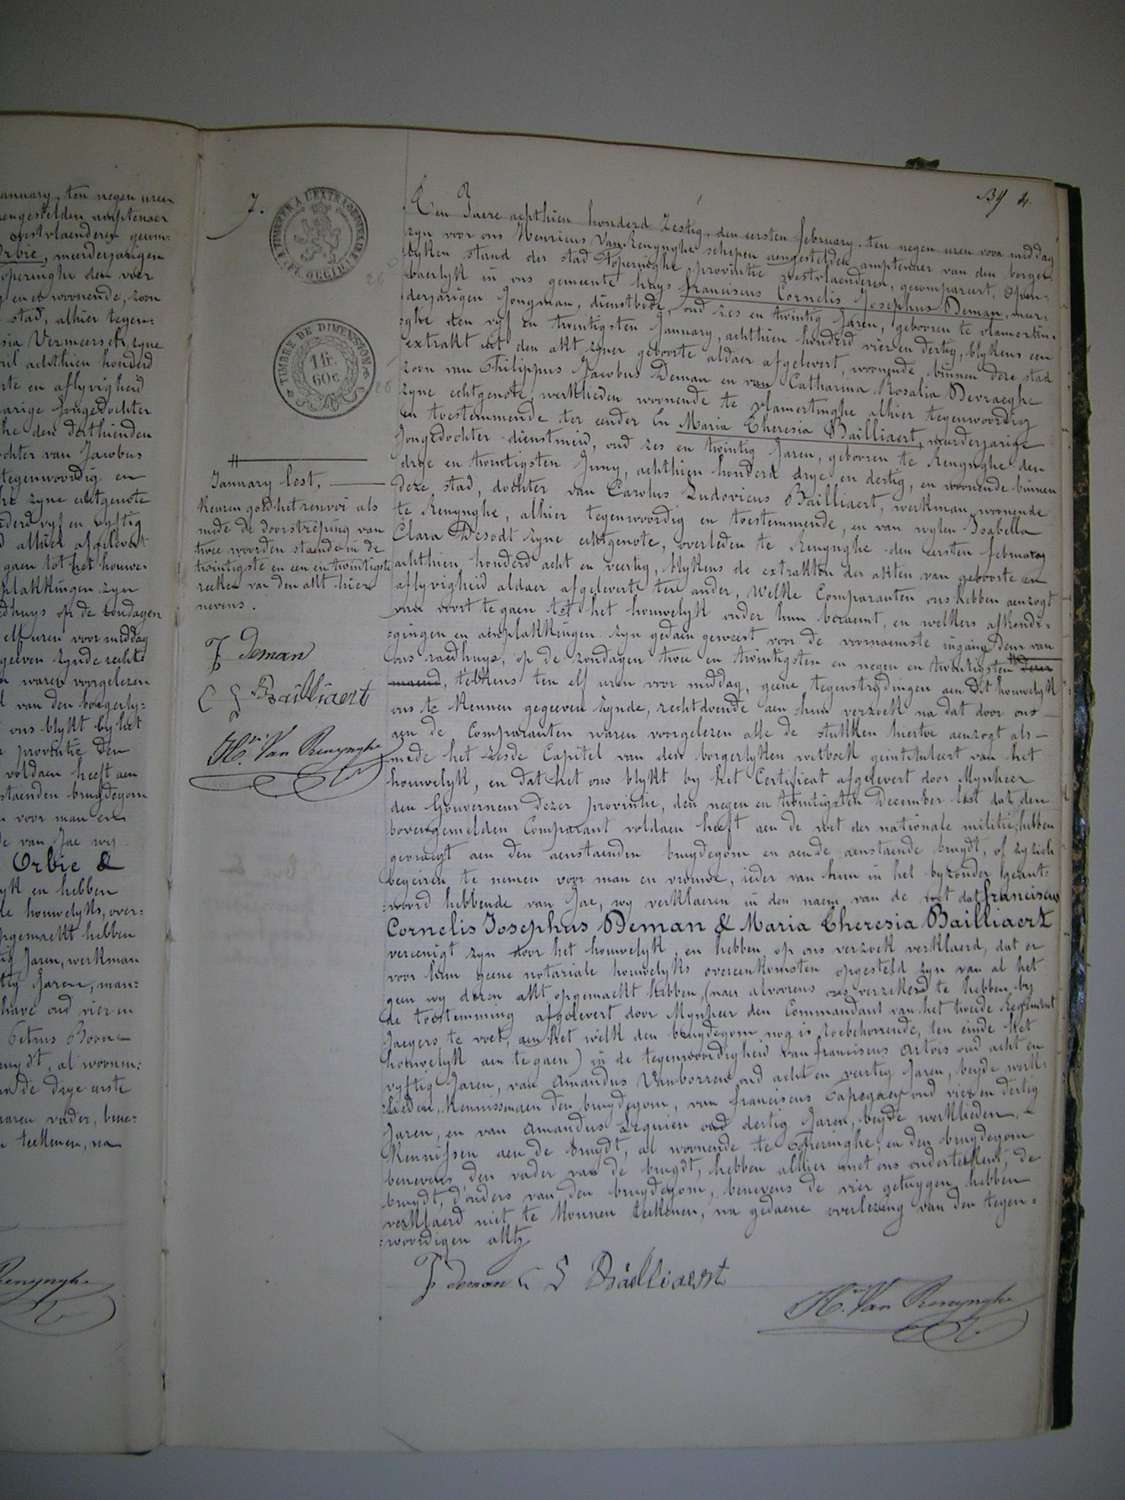 january, ten negen uren
aengestelden amptenaer
oostvlaenderen gecom-
Orbie, meerderjarigen
Poperinghe den vier
en er woonende, zoon
stad, alhier tegen-
sia Vermeersch, zyne
ril achthien honderd
rte en aflyvigheid
jarige Jongedochter
he den derthienden
dochter van Jacobus
tegenwoordig en
zyne echtgenote
derd vyf en vyftig
alhier afgelevert
gaen tot het houwe-
plakkingen zyn
dhuys op de zondagen
elf uren voor middag
geven zynde rechte
waren voorgelezen
van den borgerly-
ons blykt by het
provintie den
voldaen heeft aen
staenden bruydegom
voor man en
de van Jae wy
Orbie &
yk en hebben
de houwelyks, over-
opgemaekt hebben
tig Jaren, werkman
tig Jaren, man-
have oud vier en
Petrus Boone
uydt, al woonen-
de drye erste
waren vader, bene-
teekenen, na
Renynghe
7.
TIMBRER A L'EXTRAORDINAIRE
BELGIQUE
TIMBRE DE DIMENSION
1 fr.
60 c.
January lest,
Keuren goed het renvoi als
mede de doorstreping van
twee woorden staende in de
twintigste en een en twintigste
reken van den akt hier
nevens.
F Deman
C L Bailliaert
H. Van Renynghe
Ten Jaere achthien honderd zestig, den eersten february, ten negen uren voor middag
zyn voor ons Henricus Van Renynghe schepen aengestelden amptenaer van den borger-
lyken stand der stad Poperinghe provintie westvlaenderen, gecompareert, open-
baerlyk in ons gemeente huys franciscus Cornelis Josephus Deman, meer-
derjarigen Jongman, dienstbode, oud zes en twintig Jaren, geboren te vlamertin-
ghe den vyf en twintigsten January, achthien honderd vier en dertig, blykens een
extrakt uit den akt zyner geboorte aldaer afgelevert, woonende binnen deze stad
zoon van Philippus Jacobus Deman en van Catharina Rosalia Devraeghe
zyne echtgenote, werklieden woonende te vlamertinghe alhier tegenwoordig
en toestemmende ter eender En Maria Theresia Bailliaert, meerderjarige
Jongedochter dienstmeid, oud zes en twintig Jaren, geboren te Renynghe den
drye en twintigsten Juny, achthien honderd drye en dertig, en woonende binnen
deze stad, dochter van Carolus Ludovicus Bailliaert, werkman woonende
te Renynghe, alhier tegenwoordig en toestemmende, en van wylen Isabella
Clara Desodt zyne echtgenote, overleden te Renynghe den eersten february
achthien honderd acht en veertig, blykens de extrakten der akten van geboorte en
aflyvigheid aldaer afgelevert ter ander, Welke Comparanten ons hebben aenzogt
van voort te gaen tot het houwelyk onder hun beraemt, en welkers afkondi-
gingen en aenplakkingen zyn gedaen geweest voor de voornaemste ingang Deur van
ons raedhuys, op de zondagen twee en twintigsten en negen en twintigsten dezer
maend, telkens ten elf uren voor middag, geene tegenstrydingen aen dit houwelyk
ons te Kennen gegeven zynde, rechtdoende aen hun verzoek na dat door ons
aen de Comparanten waren voorgelezen alle de stukken hiertoe aenzogt als-
mede het zesde Capitel van den borgerlyken wetboek geintituleert van het
houwelyk, en dat het ons blykt by het Certificat afgelevert door Mynheer
den Gouverneur dezer provintie, den negen en twintigsten December lest dat den
bovengemelden Comparant voldaen heeft aen de wet der nationale militie, hebben
gevraegt aen den aenstaenden bruydegom en aende aenstaende bruydt, of zy zich
begeiren te nemen voor man en vrouwe, ieder van hun in het byzonder geant-
woord hebbende van Jae, wy verklaeren in den naem van de wet dat franciscus
Cornelis Josephus Deman & Maria Theresia Bailliaert
vereenigt zyn door het houwelyk, en hebben op ons verzoek verklaerd, dat er
voor hun geene notariale houwelyks overeenkomsten opgesteld zyn van al het
geen wy dezen akt opgemaekt hebben, (naer alvoorens ons verzekerd te hebben by
de toestemming afgelevert door Mynheer den Commandant van het tweede Regiment
Jaegers te voet, aen het welk den bruydegom nog is toebehoorende, ten einde het
houwelyk aen te gaen) in de tegenwoordigheid van franciscus Artois oud acht en
vyftig Jaren, van Amandus Vanborren oud acht en veertig Jaren, beyde werk-
lieden, Kennissen aen den bruydegom, van franciscus oud vier en dertig
Jaren, en van Amandus Lequien oud dertig Jaren, beyde werklieden,
Kennissen aen de bruydt, al woonende te Poperinghe; en den bruydegom
benevens den vader van de bruydt, hebben alhier met ons onderteekent, de
bruydt, d'ouders van den bruydegom, benevens de vier getuygen hebben
verklaerd niet te Konnen teekenen, na gedaene overlezing van den tegen-
woordigen akt.
F Deman C L Bailliaert
H. Van Renynghe